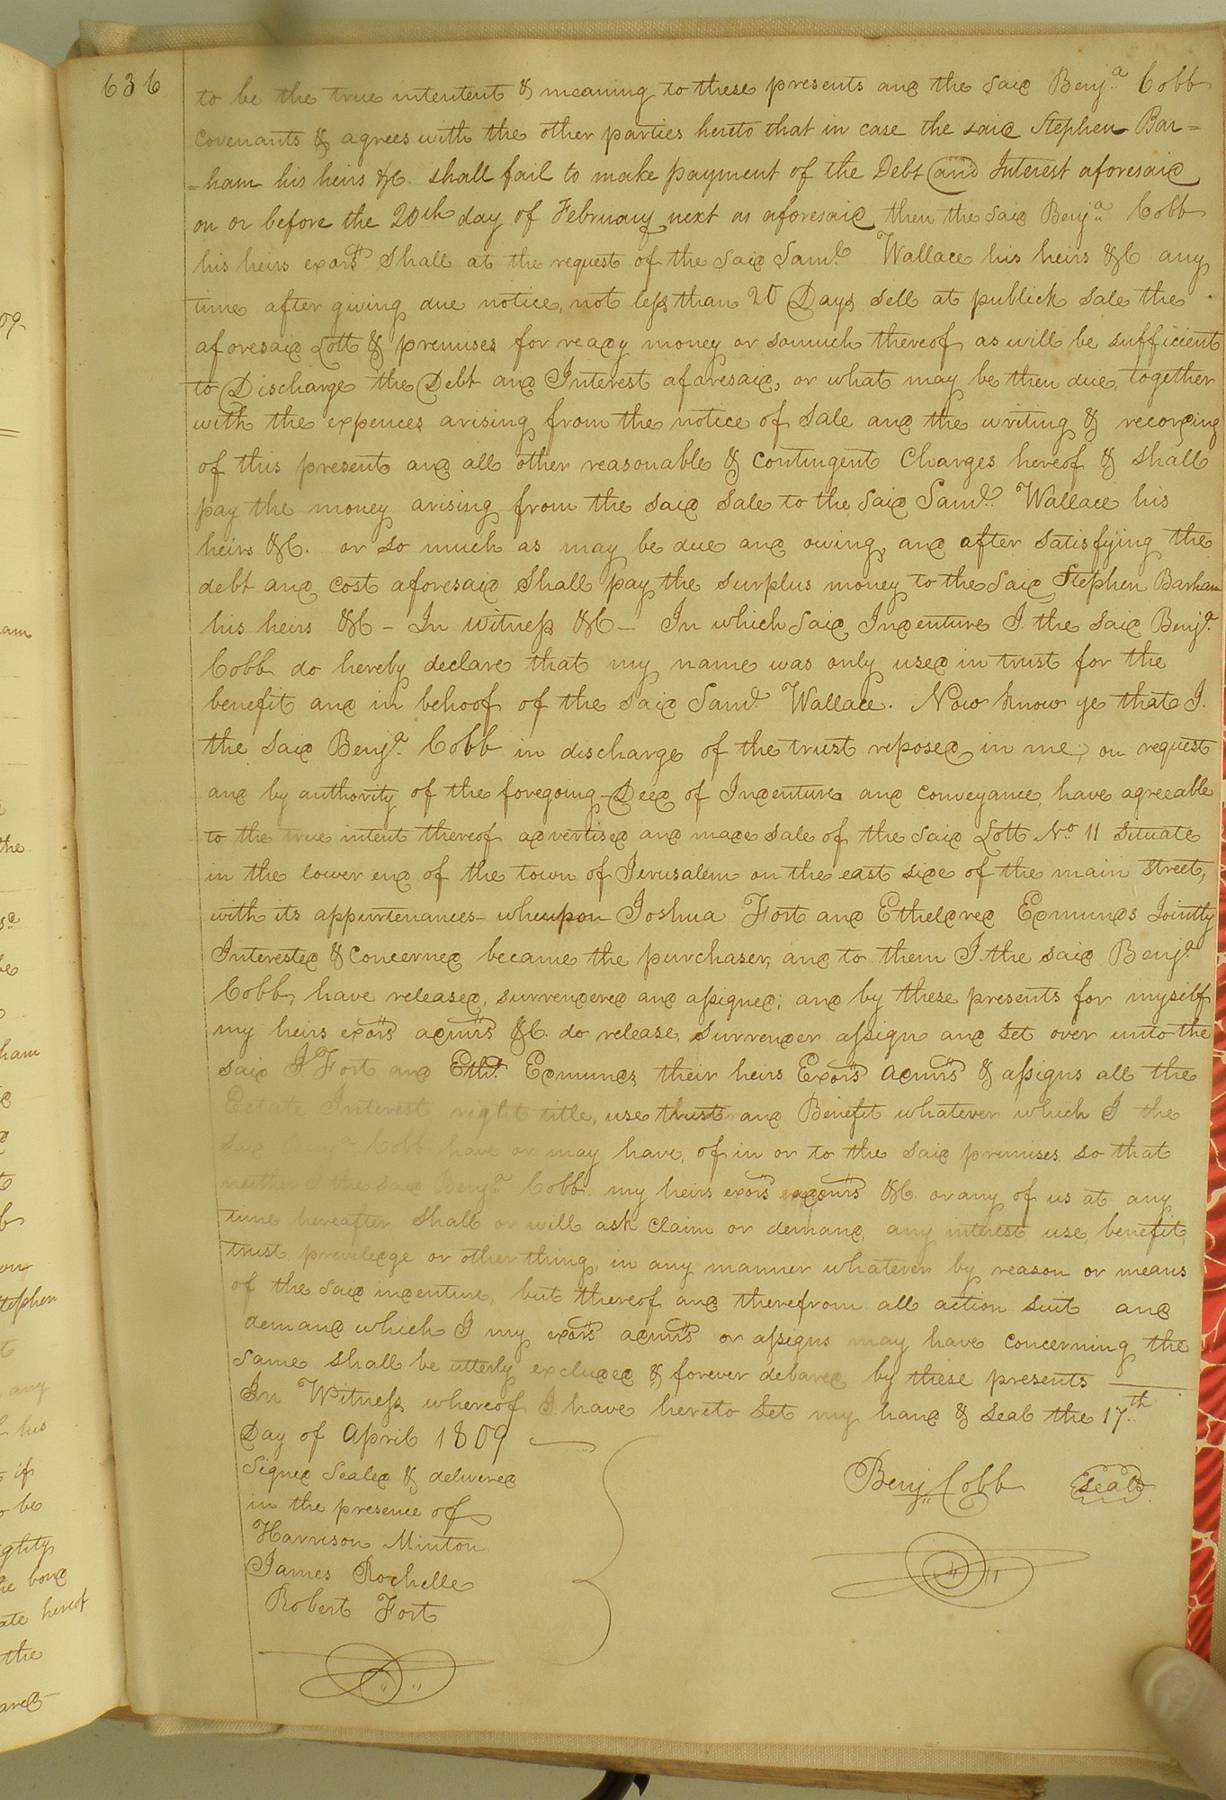 636
to be the true intentent & meaning to these presents and the said Benja. Cobb
covenants & agrees with the other parties hereto that in case the said Stephen Bar=
=ham his heirs &C. shall fail to make payment of the Debt and Interest aforesaid
on or before the 20th day of February next as aforesaid then the said Benja. Cobb
his heirs exors shall at the request of the said Saml. Wallace his heirs &C any
time after giving due notice, not less than 20 Days sell at publick sale the
aforesaid Lott & premises for ready money or somuch thereof as will be sufficient
to Discharge the Debt and Interest afaresaid, or what may be then due, together
with the expences arising from the notice of sale and the writing & recording
of this present and all other reasonable & Contingent Charges hereof & shall
pay the money arising from the said sale to the said Saml. Wallace his
heirs &C. or so much as may be due and owing, and after satisfying the
debt and cost aforesaid shall pay the surplus money to the said Stephen Barham
his heirs &C - In witness &C - In which said Indenture I the said Benja.
Cobb do hereby declare that my name was only used in trust for the
benefit and in behoof of the said Saml. Wallace. Now know ye that I.
the said Benja. Cobb in discharge of the trust reposed in me, on request
and by authority of the foregoing Deed of Indenture and conveyance, have agreeable
to the true intent thereof advertised and made sale of the said Lott No. 11 situate
in the lower end of the town of Jerusalem on the east side of the main street,
with its appurtenances - whenpon Joshua Fort and Etheldred Edmunds Jointly
Interested & Concerned became the purchaser, and to them I the said Benja.
Cobb, have released, surrendered and assigned; and by these presents for myself
my heirs exors admrs &C. do release, surrender assign and set over unto the
said J Fort and Ethd. Edmunds their heirs Exors admrs & assigns all the
Estate Interest right title, use trust and Benefit whatever which I the
said Benja. Cobb have or may have, of in or to the said premises so that
neither I the said Benja. Cobb my heirs exors admrs &C. or any of us at any
time hereafter shall or will ask claim or demand, any interest use, benefit
trust priviledge or other thing, in any manner whatever by reason or means
of the said indenture, but thereof and therefrom all action suit and
demand which I my exors admrs or assigns may have concerning the
same shall be utterly excluded & forever debared by these presents
In Witness whereof I have hereto set my hand & seal the 17th
Day of April 1809
Signed Sealed & delivered
in the presence of
Harrison Minton
James Rochelle
Robert Fort
Benj Cobb Seal